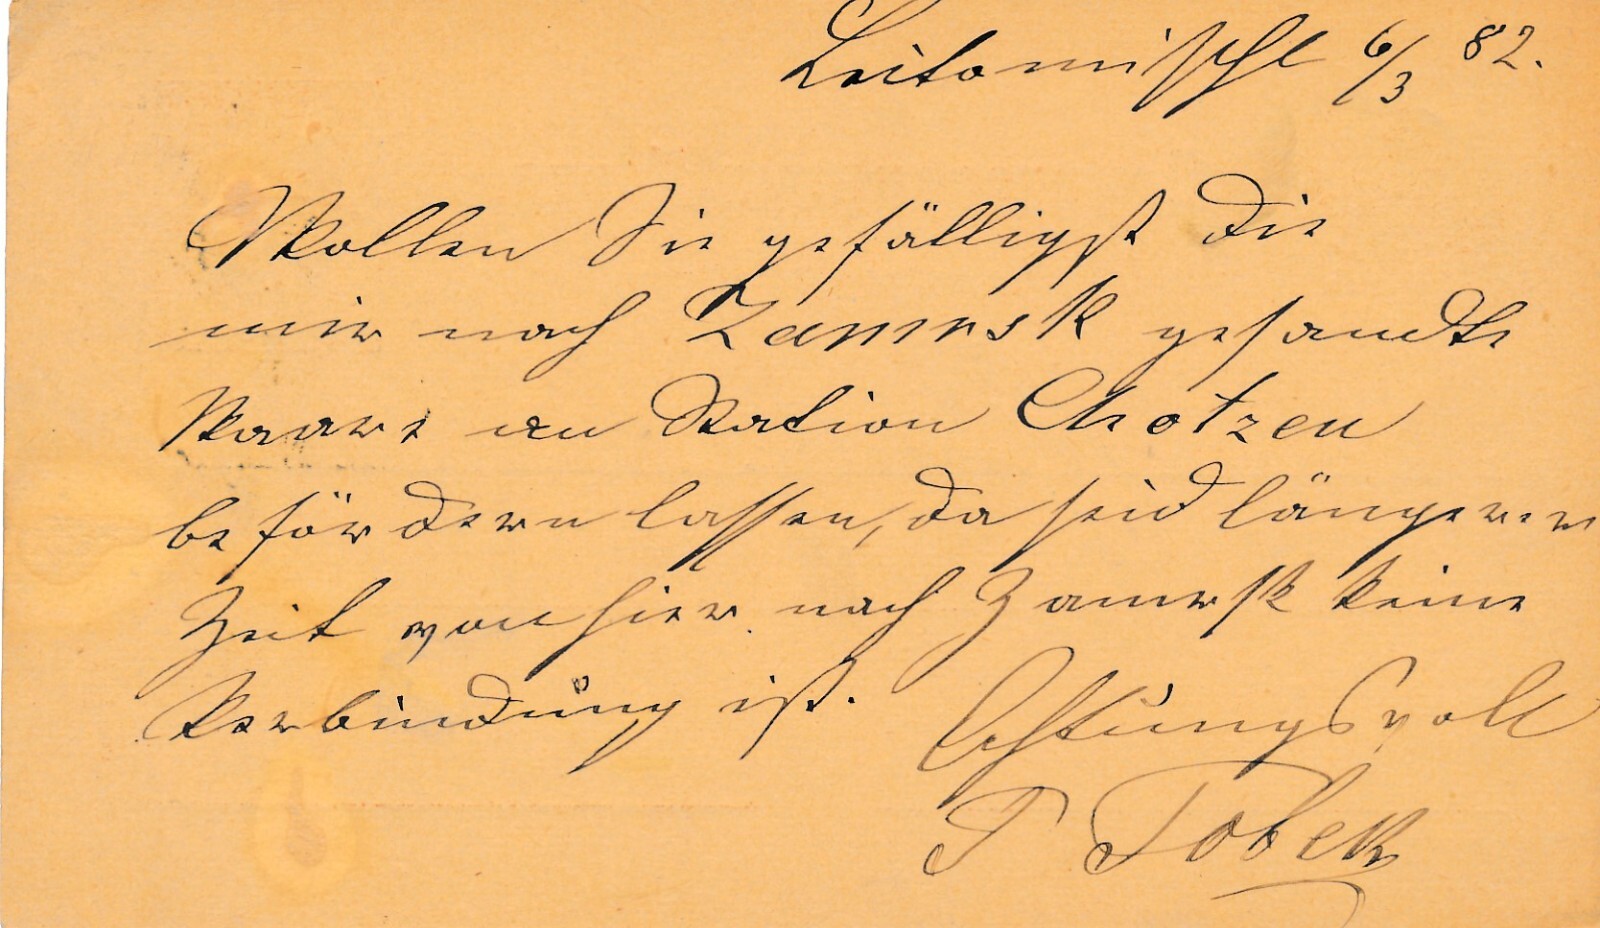 Leitomischl 6/3 82.
Wollen Sie gefälligst die
mir nach Zamrsk gesandte
Waare an Station Chotzen
befördern lassen, da seid längerer
Zeit von hier nach Zamrsk keine
Verbindung ist. Achtungsvoll